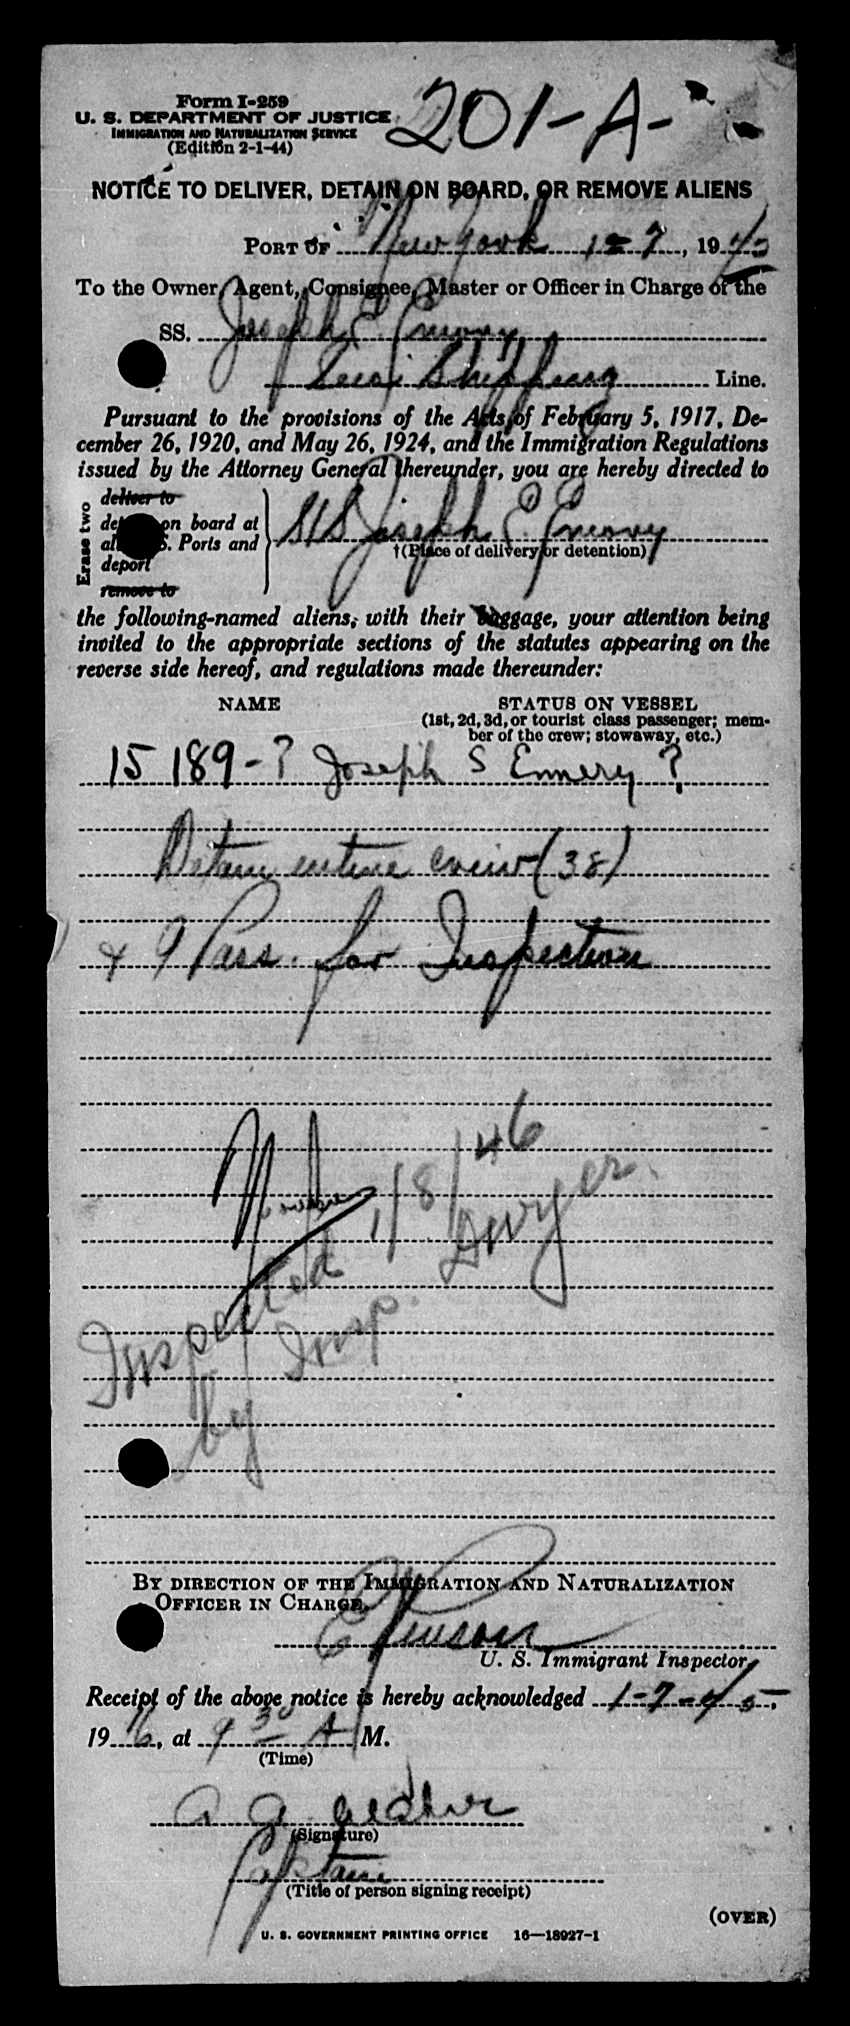 Form I-259
U. S. DEPARTMENT OF JUSTICE
IMMIGRATION AND NATURALIZATION SERVICE
(Edition 2-1-44)
201-A-
NOTICE TO DELIVER, DETAIN ON BOARD, OR REMOVE ALIENS
PORT OF New York 1-7, 1945
To the Owner, Agent, Consignee, Master or Officer in Charge of the
SS. Joseph E. Emory
Shipping Line.
Pursuant to the provisions of the Acts of February 5, 1917, De-
cember 26, 1920, and May 26, 1924, and the Immigration Regulations
issued by the Attorney General thereunder, you are hereby directed to
Erase two
deliver to
on board at
S. Ports and
deport
remove to
S/S Joseph E. Emory
†(Place of delivery or detention)
the following-named aliens, with their baggage, your attention being
invited to the appropriate sections of the statutes appearing on the
reverse side hereof, and regulations made thereunder:
NAME
STATUS ON VESSEL
(1st, 2d, 3d, or tourist class passenger; mem-
ber of the crew; stowaway, etc.)
15 189-? Joseph S Emery ?
Detain entire crew (38)
+ 9 Pass. for Inspection
1/8/46
Inspected
by Insp. Dwyer.
BY DIRECTION OF THE IMMIGRATION AND NATURALIZATION
OFFICER IN CHARGE.
U. S. Immigrant Inspector
Receipt of the above notice is hereby acknowledged 1-7-45,
1946, at 9 30 A M.
(Time)
(Signature)
Captain
(Title of person signing receipt)
(OVER)
U. S. GOVERNMENT PRINTING OFFICE 16—18927-1